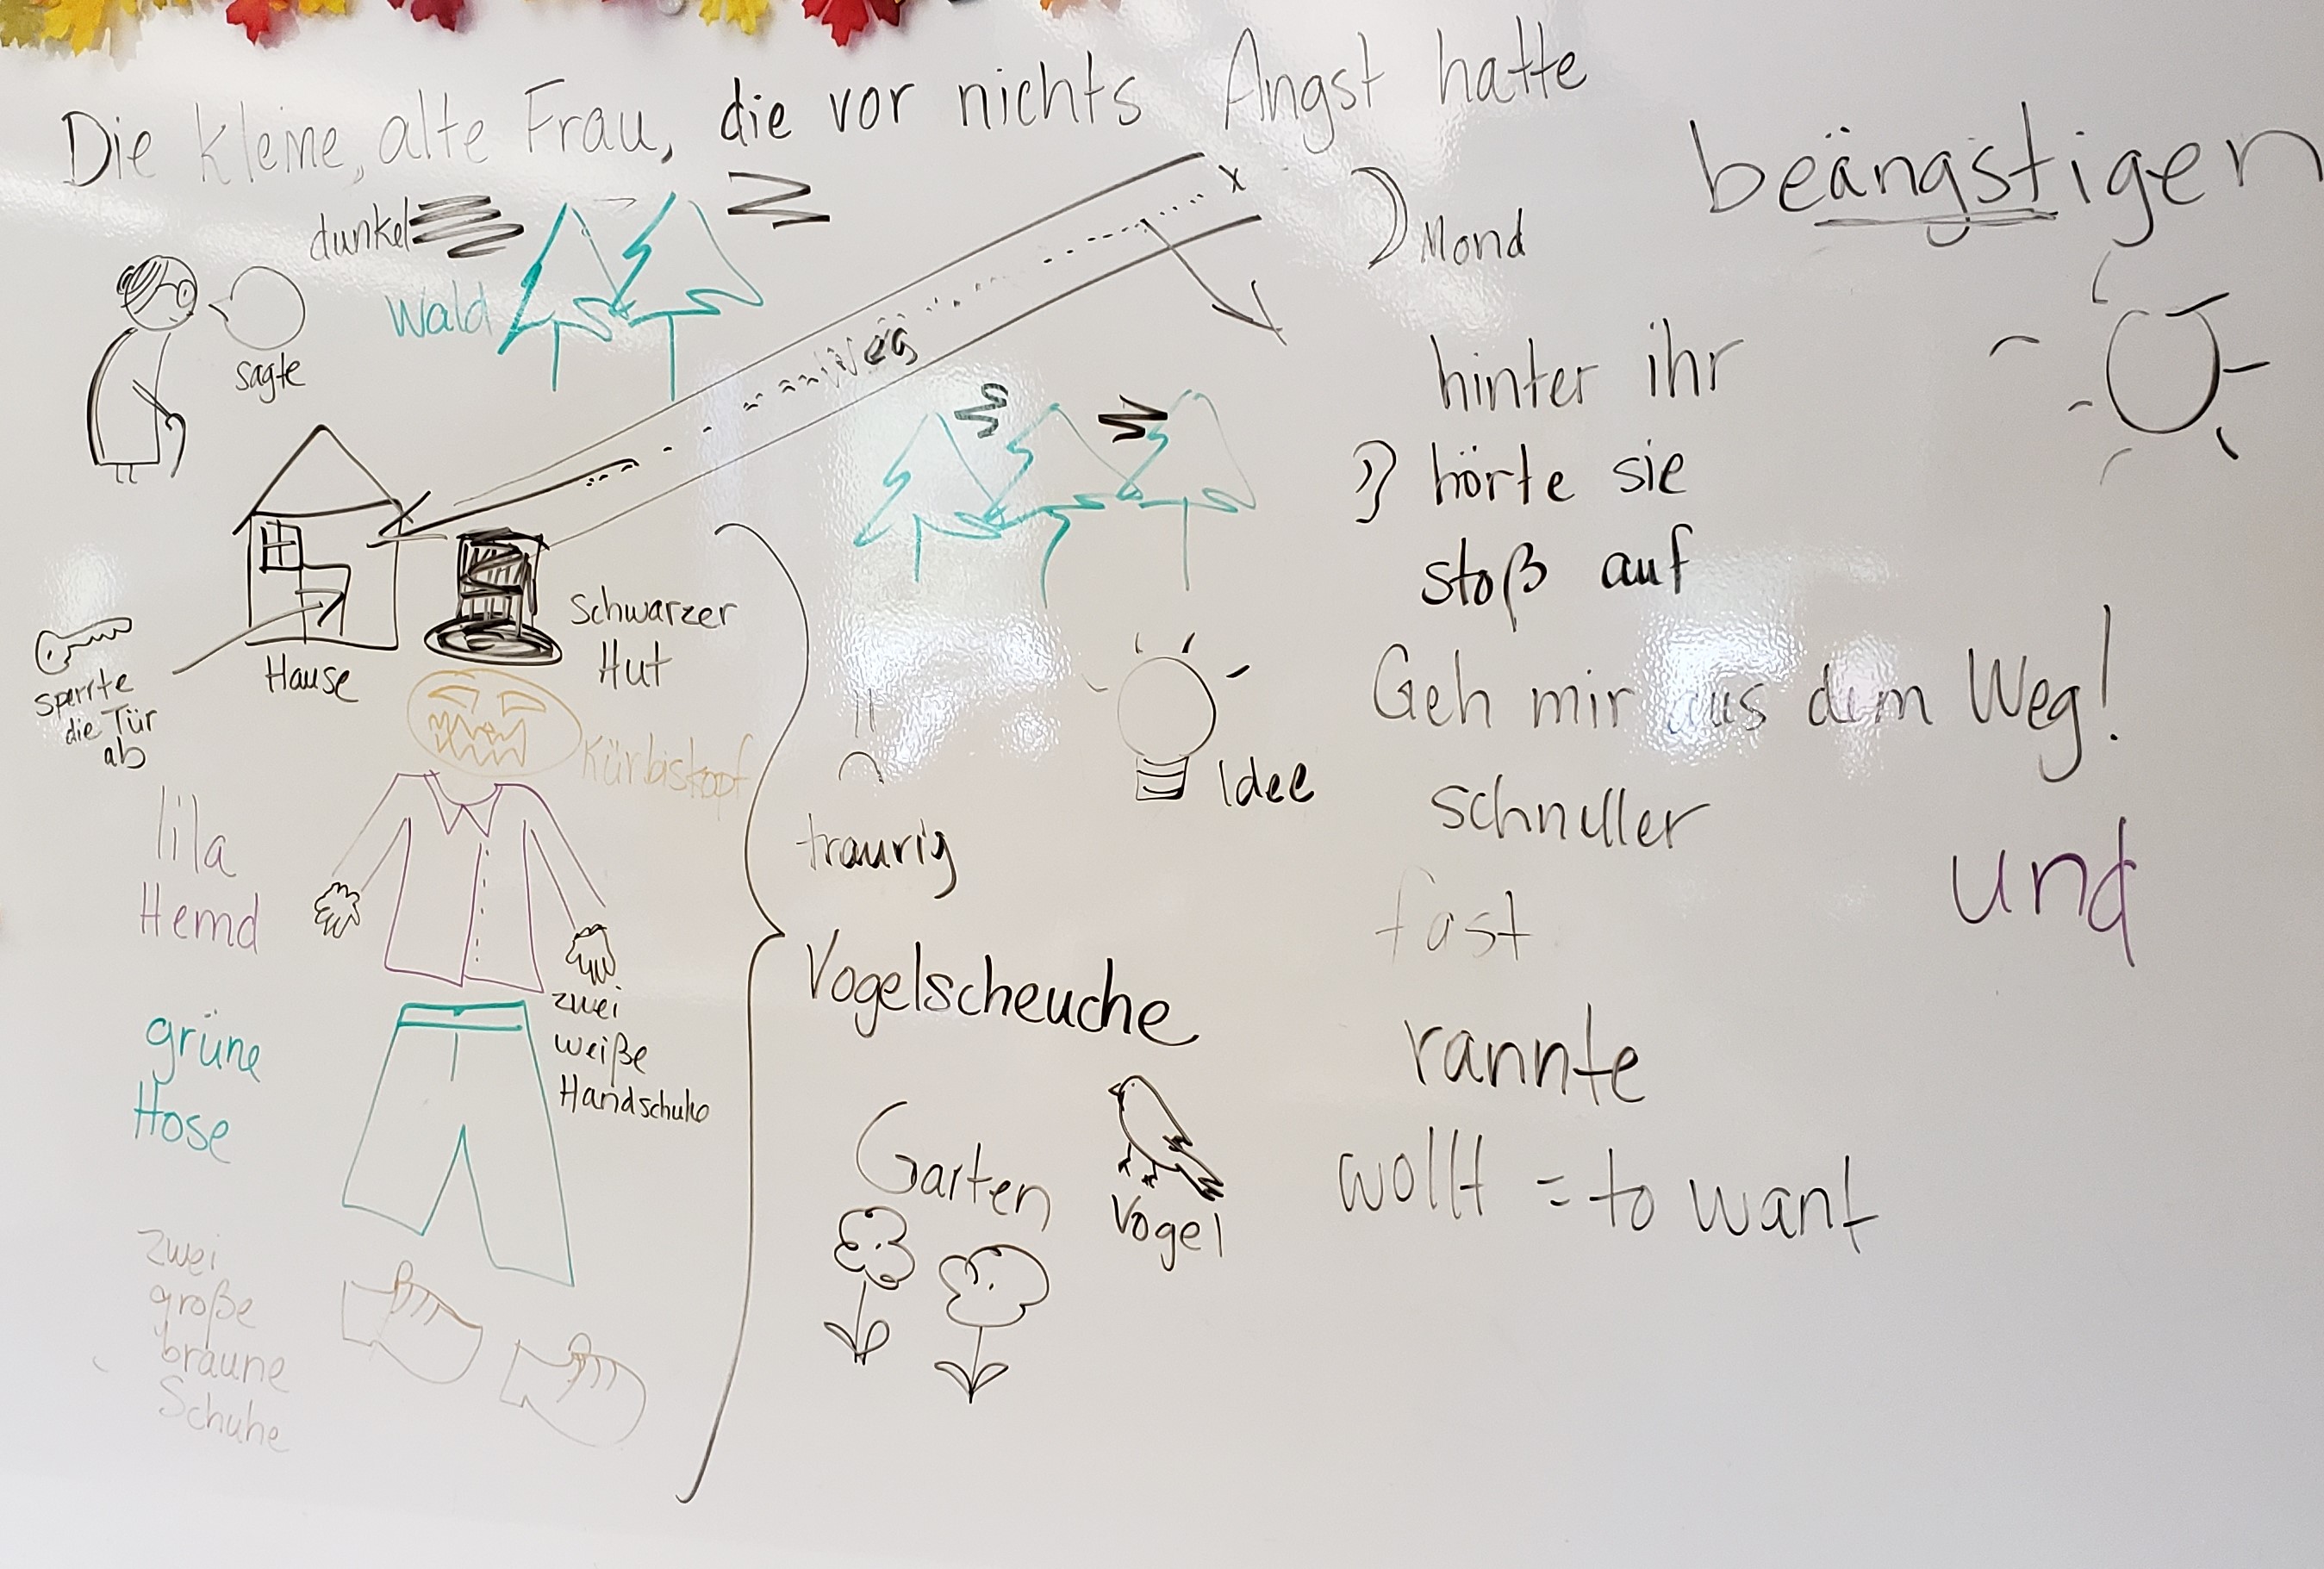 Die kleine, alte Frau, die vor nichts Angst hatte
beängstigen
dunkel
Wald
sagte
Weg
Mond
hinter ihr
hörte sie
stoß auf
Geh mir aus dem Weg!
schneller
fast
rannte
wollt = to want
und
Hause
sperrte
die Tür
ab
Schwarzer
Hut
Kürbiskopf
lila
Hemd
zwei
weiße
Handschuhe
grüne
Hose
zwei
große
braune
Schuhe
traurig
Idee
Vogelscheuche
Garten
Vogel